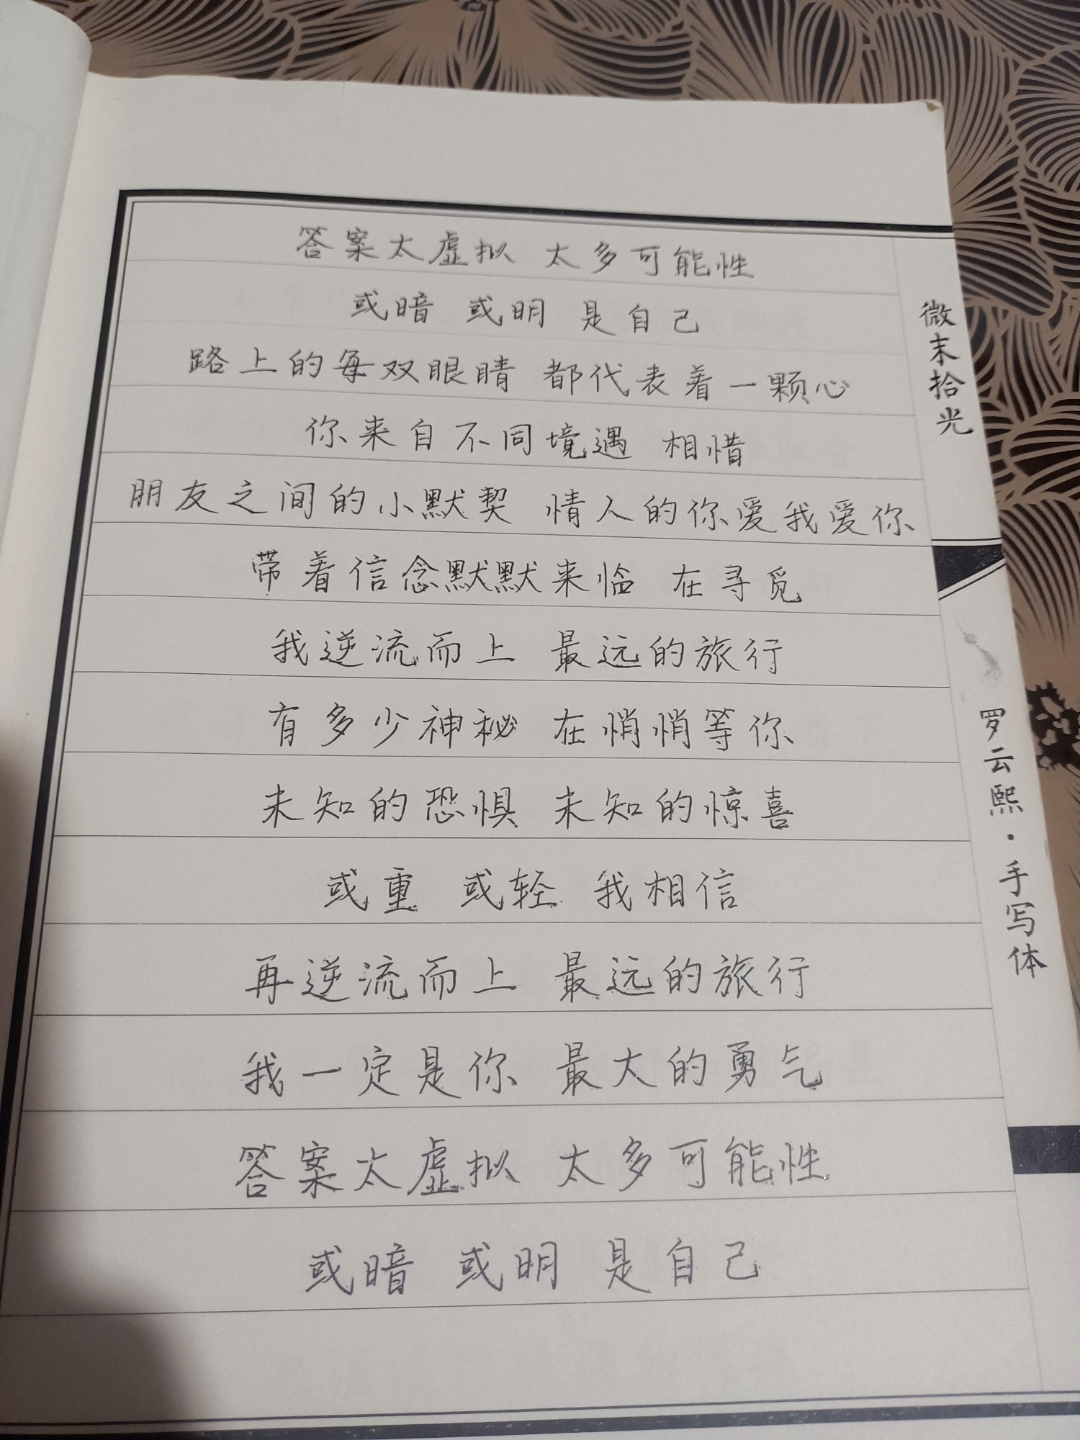 答案太虚拟 太多可能性
或暗 或明 是自己
路上的每双眼睛 都代表着一颗心
你来自不同境遇 相惜
朋友之间的小默契 情人的你爱我爱你
带着信念默默来临 在寻觅
我逆流而上 最远的旅行
有多少神秘 在悄悄等你
未知的恐惧 未知的惊喜
或重 或轻 我相信
再逆流而上 最远的旅行
我一定是你 最大的勇气
答案太虚拟 太多可能性
或暗 或明 是自己
微末拾光
罗云熙·手写体